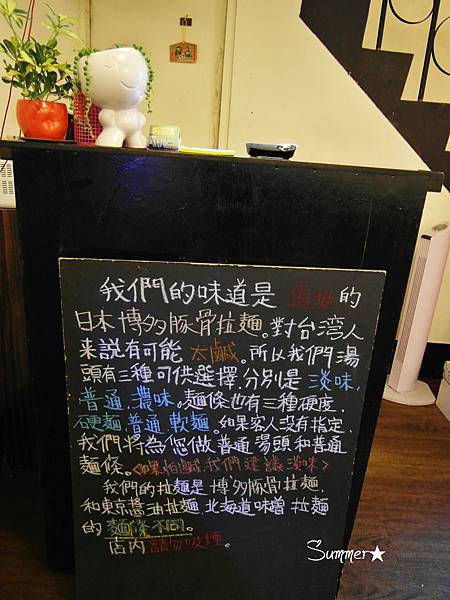 我們的味道是 道地的
日本博多豚骨拉麵。對台灣人
來說有可能 太鹹。所以我們湯
頭有三種可供選擇,分別是 淡味,
普通,濃味。麵條也有三種硬度,
硬麵 普通 軟麵。如果客人沒有指定,
我們將為您做普通湯頭和普通
麵條。<如果怕鹹,我們建議淡味>
我們的拉麵是 博多豚骨拉麵
和東京醬油拉麵 北海道味噌 拉麵
的 麵條不同。
店內 請勿吸煙。
Summer★